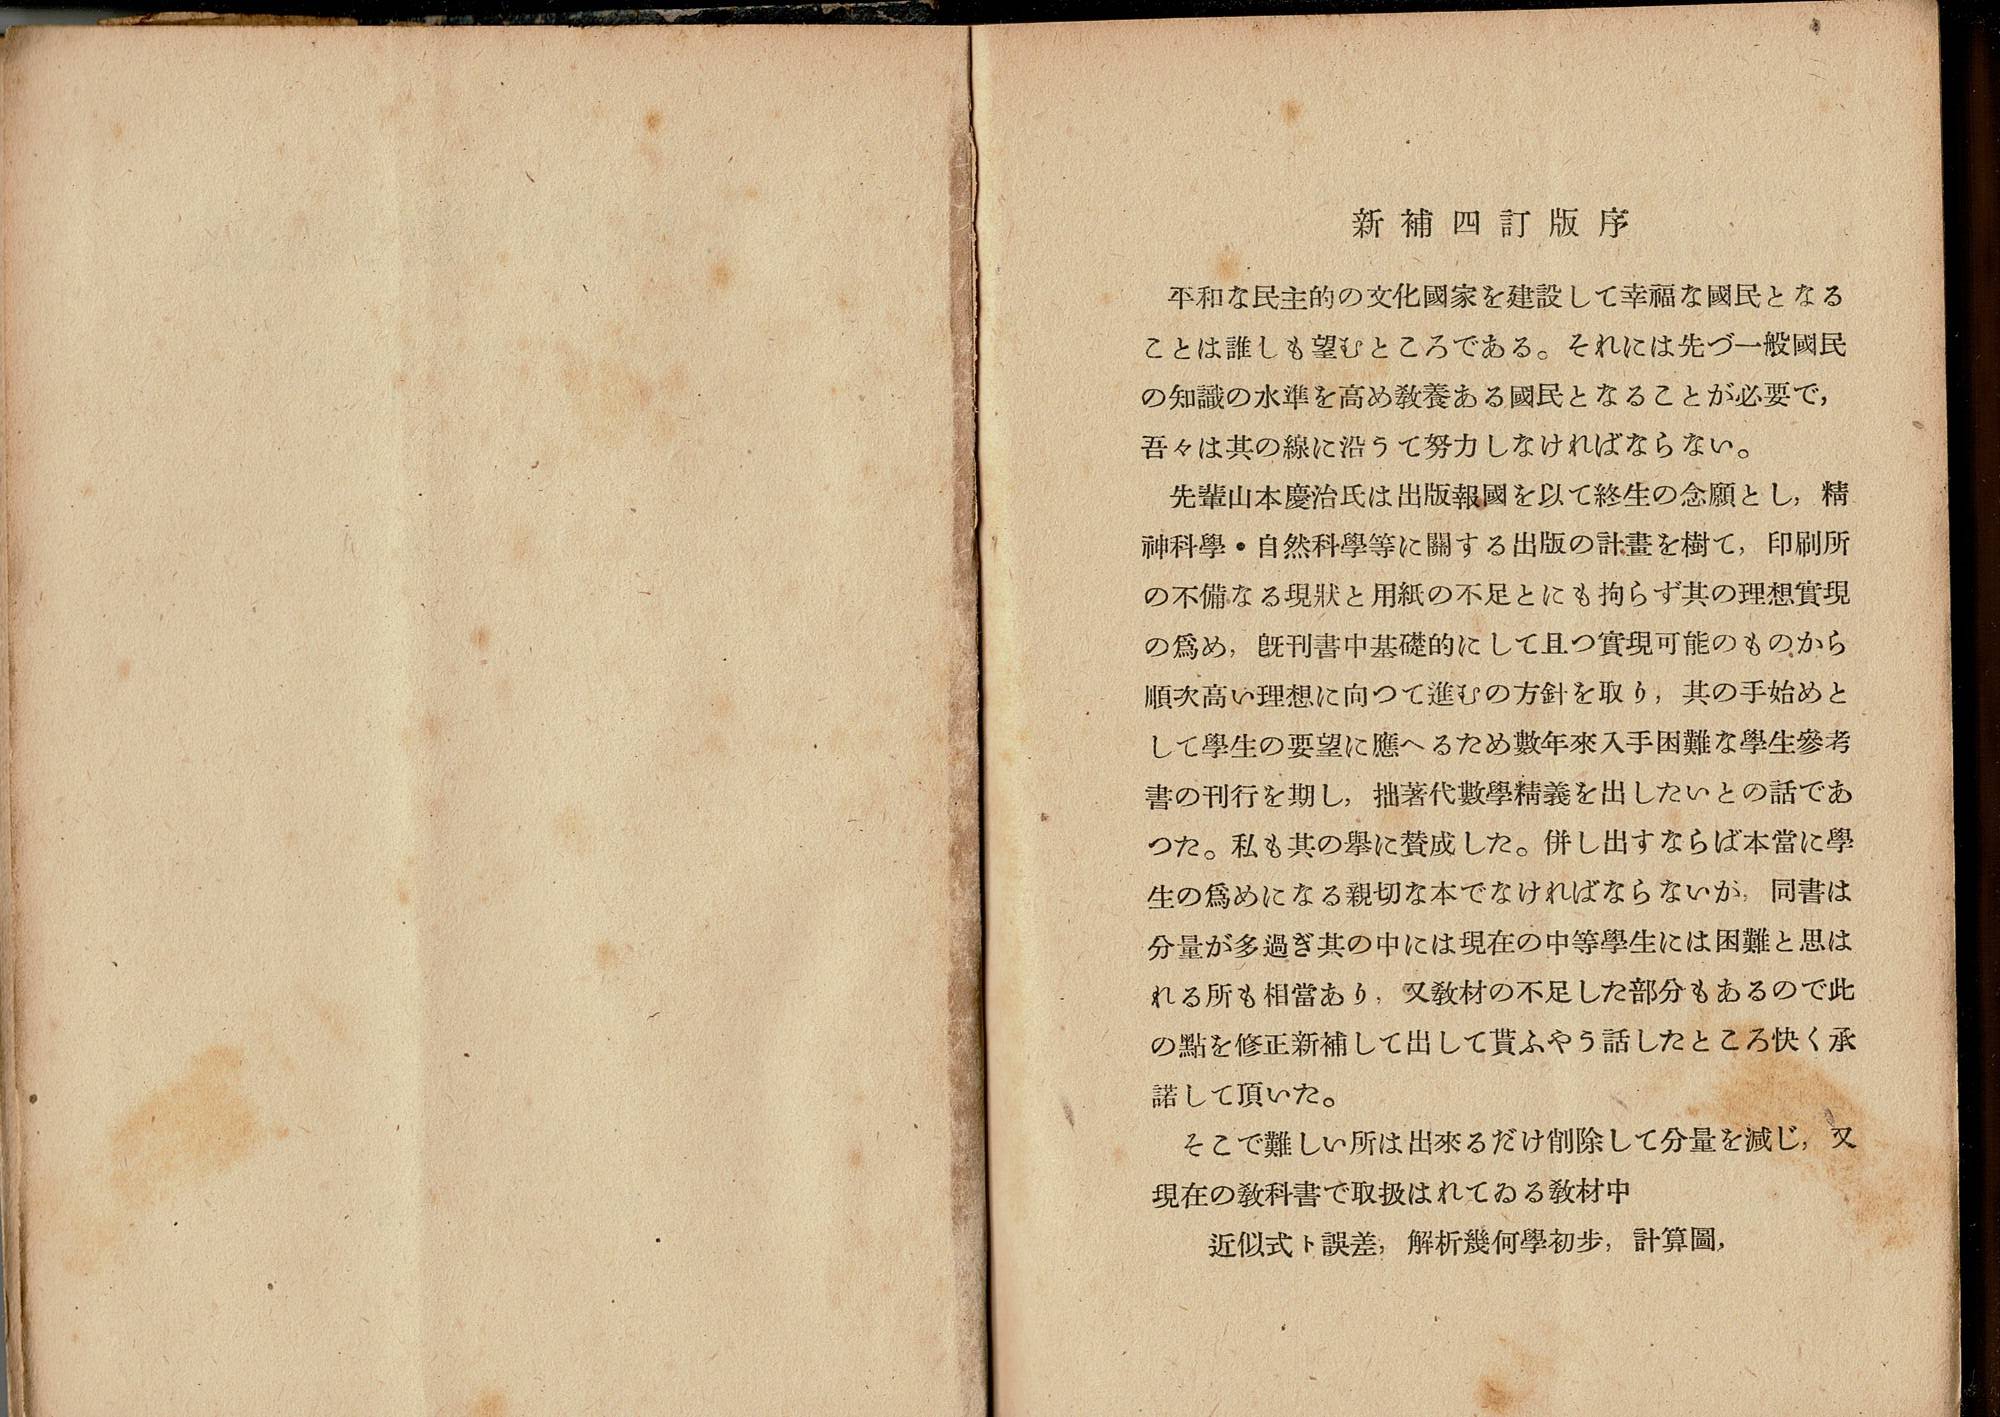 新補四訂版序
平和な民主的の文化國家を建設して幸福な國民となる
ことは誰しも望むところである。それには先づ一般國民
の知識の水準を高め敎養ある國民となることが必要で，
吾々は其の線に沿うて努力しなければならない。
先輩山本慶治氏は出版報國を以て終生の念願とし，精
神科學・自然科學等に關する出版の計畫を樹て，印刷所
の不備なる現狀と用紙の不足とにも拘らず其の理想實現
の爲め，旣刊書中基礎的にして且つ實現可能のものから
順次高い理想に向つて進むの方針を取り，其の手始めと
して學生の要望に應へるため數年來入手困難な學生參考
書の刊行を期し，拙著代數學精義を出したいとの話であ
つた。私も其の擧に賛成した。併し出すならば本當に學
生の爲めになる親切な本でなければならないが，同書は
分量が多過ぎ其の中には現在の中等學生には困難と思は
れる所も相當あり，又敎材の不足した部分もあるので此
の點を修正新補して出して貰ふやう話したところ快く承
諾して頂いた。
そこで難しい所は出來るだけ削除して分量を減じ，又
現在の敎科書で取扱はれてゐる敎材中
近似式ト誤差，解析幾何學初步，計算圖，